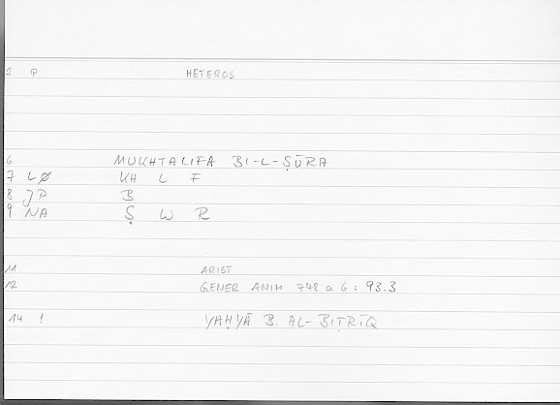 2 P HETEROS
6 MUKHTALIFA BI-L-ṢŪRA
7 LØ KH L F
8 JP B
9 NA Ṣ W R
11 ARIST
12 GENER ANIM 748 a 6 : 93.3
14 ! YAḤYĀ B. AL-BIṬRĪQ